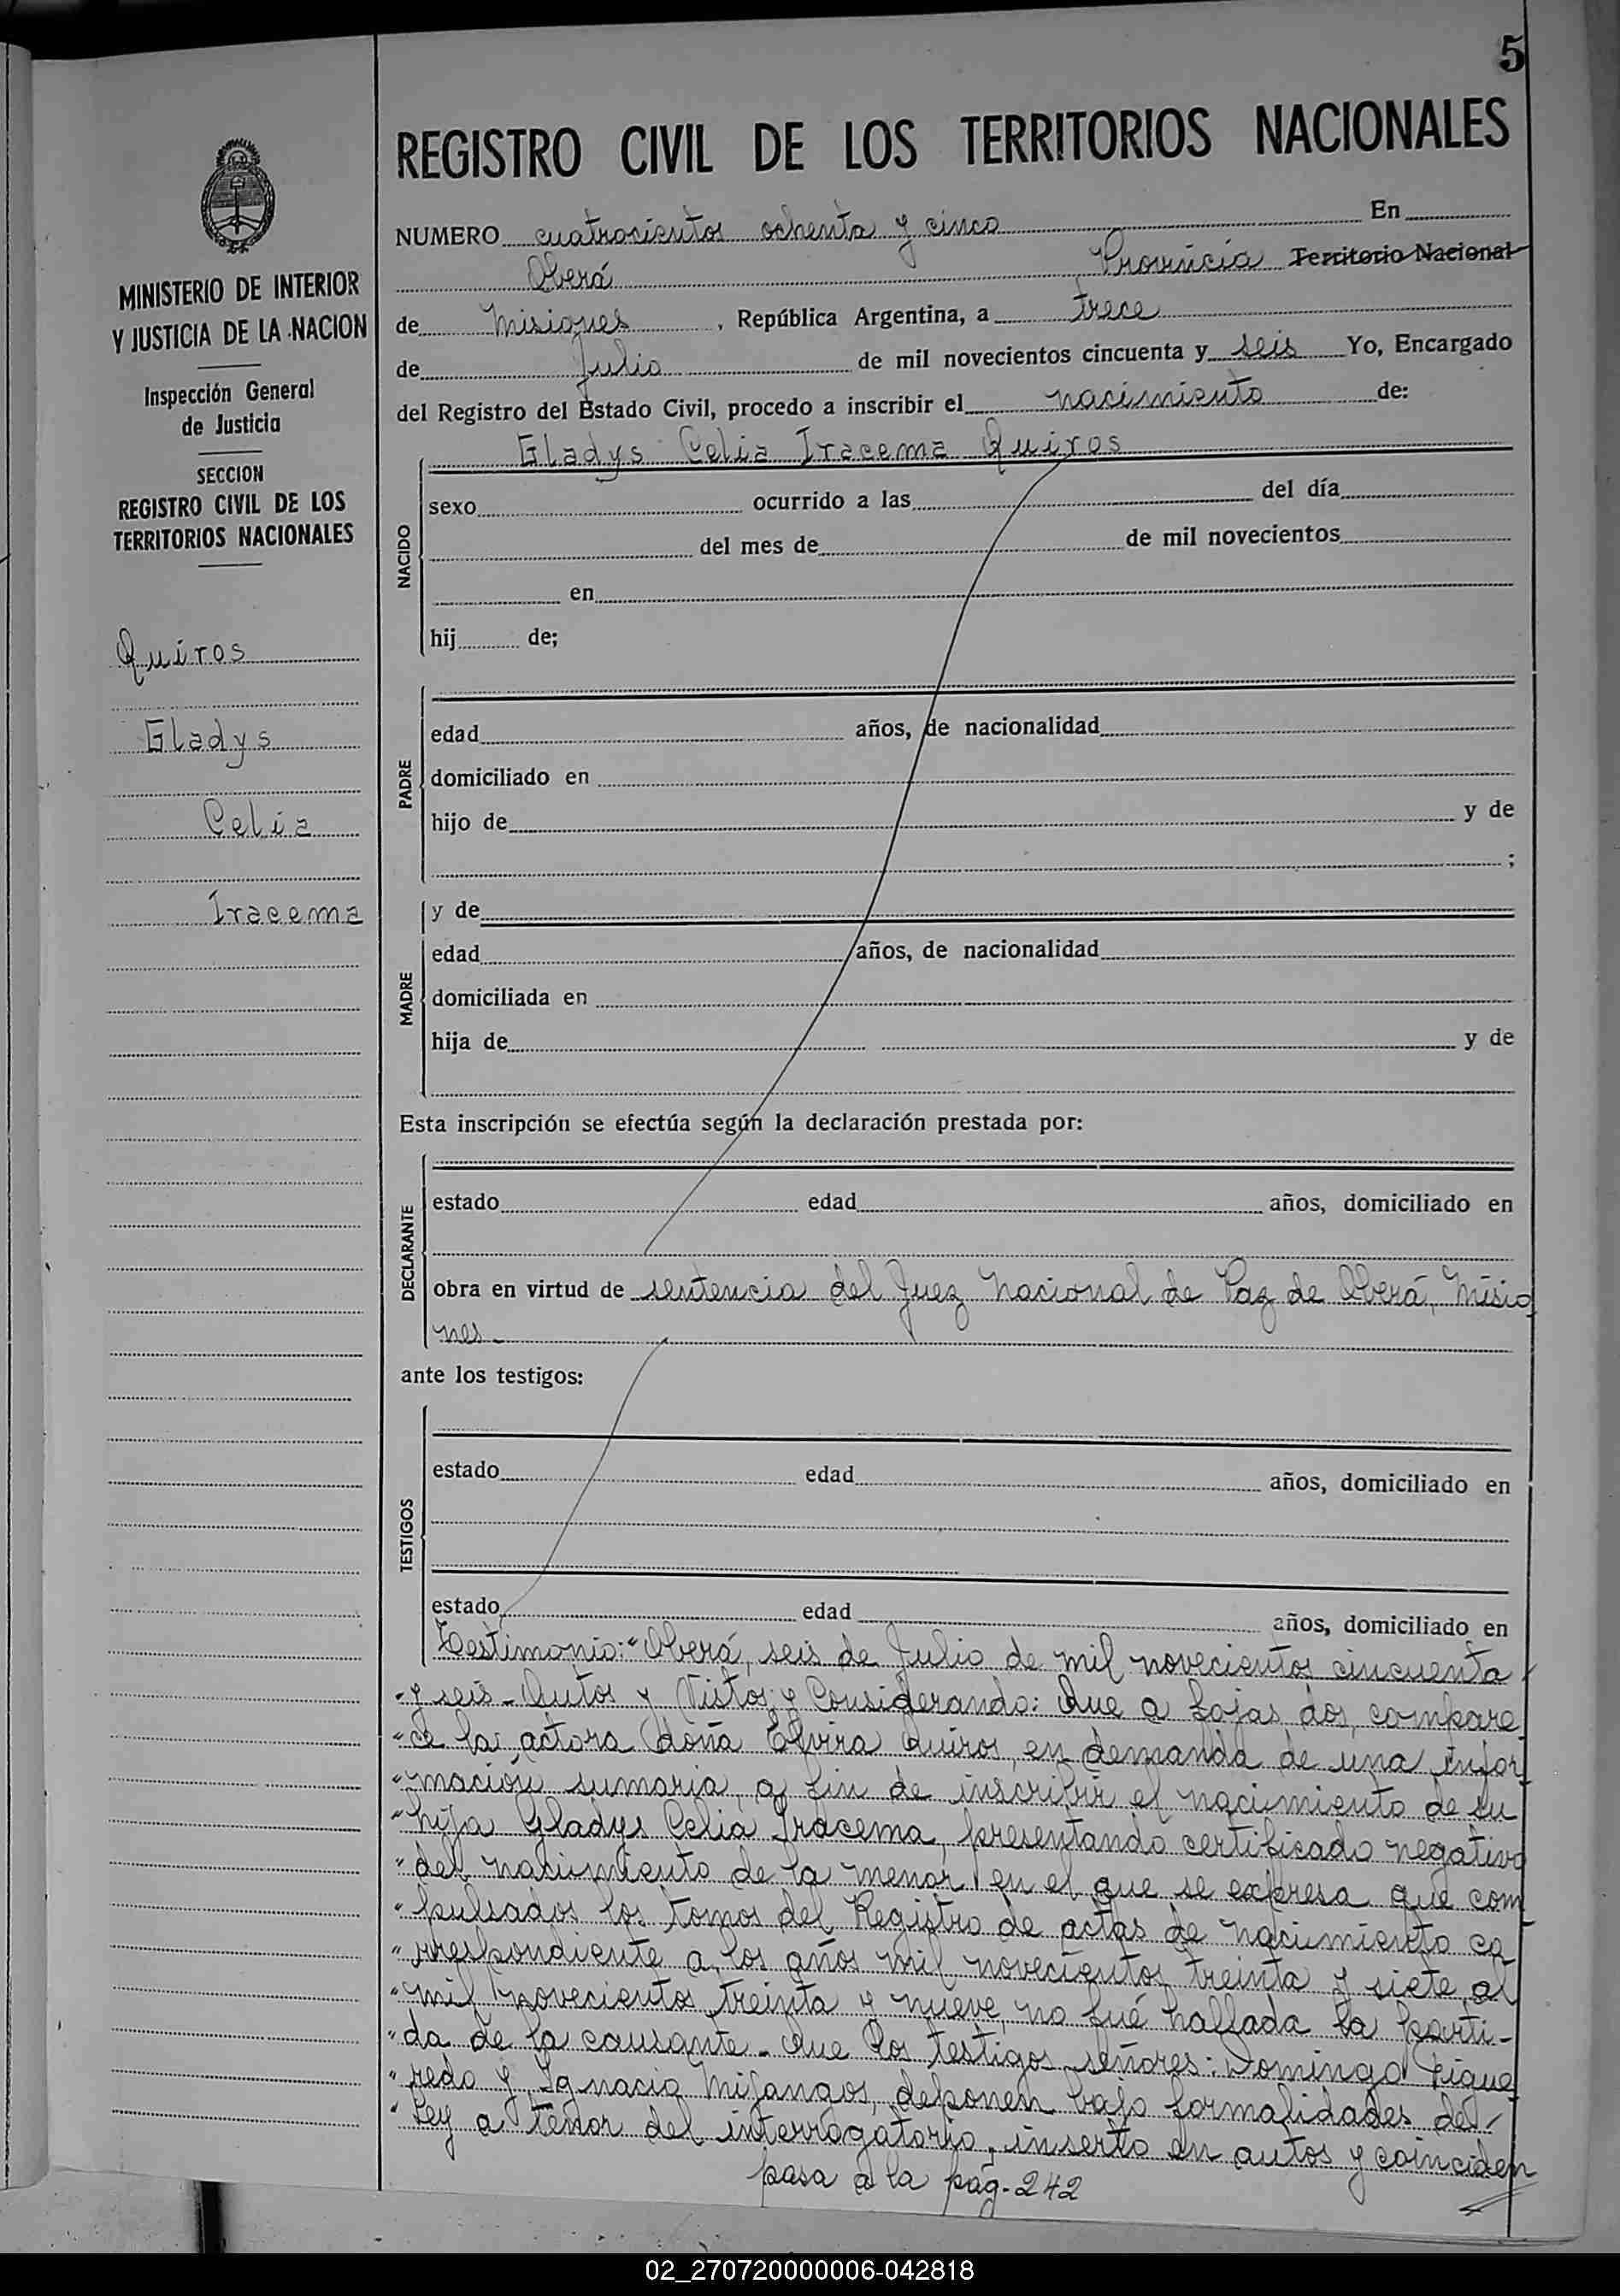 5
REGISTRO CIVIL DE LOS TERRITORIOS NACIONALES
MINISTERIO DE INTERIOR
Y JUSTICIA DE LA NACION
Inspección General
de Justicia
SECCION
REGISTRO CIVIL DE LOS
TERRITORIOS NACIONALES
Quiros
Gladys
Celia
Iracema
NUMERO cuatrocientos ochenta y cinco En
Oberá Provincia Territorio Nacional
de Misiones, República Argentina, a trece
de Julio de mil novecientos cincuenta y seis Yo, Encargado
del Registro del Estado Civil, procedo a inscribir el nacimiento de:
Gladys Celia Iracema Quiros
NACIDO
sexo ocurrido a las del día
del mes de de mil novecientos
en
hij de;
PADRE
edad años, de nacionalidad
domiciliado en
hijo de y de
;
y de
MADRE
edad años, de nacionalidad
domiciliada en
hija de y de
Esta inscripción se efectúa según la declaración prestada por:
DECLARANTE
estado edad años, domiciliado en
obra en virtud de sentencia del Juez Nacional de Paz de Oberá, Misio
nes-
ante los testigos:
TESTIGOS
estado edad años, domiciliado en
estado edad años, domiciliado en
Testimonio: "Oberá, seis de Julio de mil novecientos cincuenta
"y seis - Autos y Vistos; y Considerando: Que a fojas dos, compare
"ce la actora doña Elvira Quiros, en demanda de una infor
"mación sumaria, a fin de inscribir el nacimiento de su
"hija Gladys Celia Iracema, presentando certificado negativo
"del nacimiento de la menor, en el que se expresa que com
"pulsados los tomos del Registro de actas de nacimiento co
"rrespondiente a los años mil novecientos treinta y siete al
"mil novecientos treinta y nueve, no fué hallada la parti-
"da de la causante - Que los testigos señores: Domingo Figue
"redo y Ignacio Mijangos, deponen bajo formalidades de
"Ley a tenor del interrogatorio, inserto en autos y coinciden
pasa a la pág. 242
02_270720000006-042818